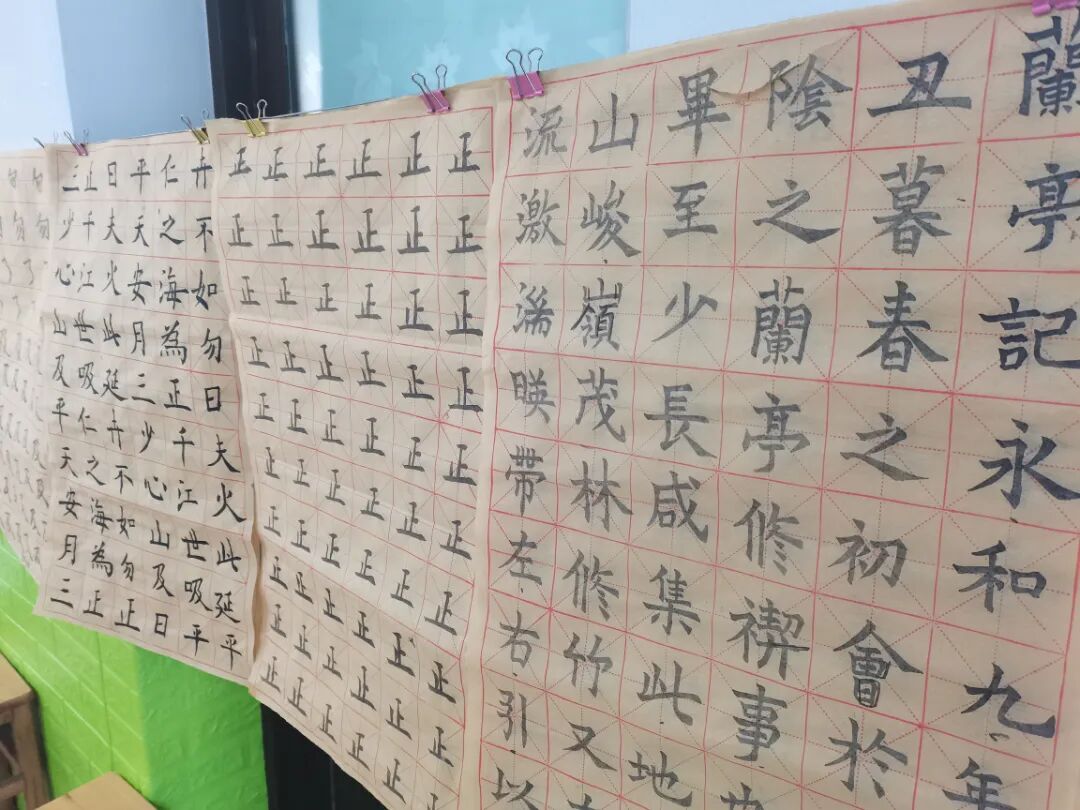 蘭亭記永和九年
丑暮春之初會於
陰之蘭亭修禊事
畢至少長咸集此地
山峻嶺茂林修竹又
流激湍暎帶左右引以
正正正正正正正正正正
正正正正正正正正正正
正正正正正正正正正正
正正正正正正正正正正
正正正正正正正正正正
正正正正正正正正正正
卉不如勿日夫火此延平
仁之海為正千江世吸平
平天安月三少心山及日
日夫火此延卉不如勿正
正千江世吸仁之海為正
三少心山及平天安月三